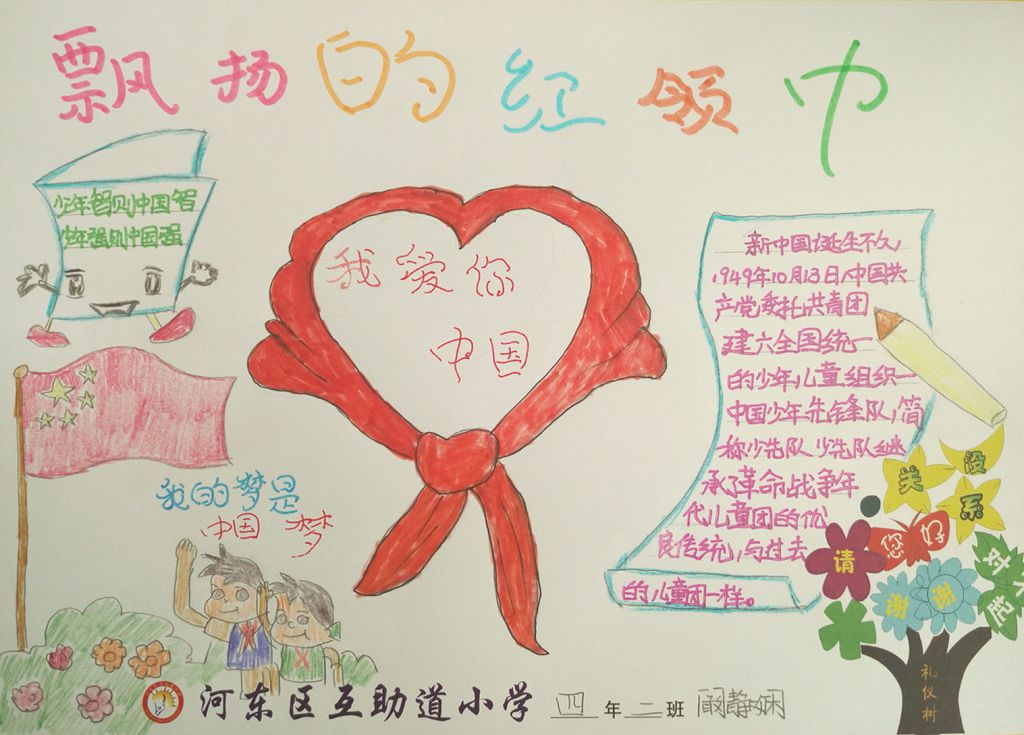 飘扬的红领巾
少年智则中国智
少年强则中国强
我爱你
中国
新中国诞生不久,
1949年10月13日,中国共
产党委托共青团
建立全国统一
的少年儿童组织—
中国少年先锋队,简
称少先队 少先队继
承了革命战争年
代儿童团的优
良传统,与过去
的儿童团一样。
我的梦是
中国 梦
没
关
系
您好
请
谢谢
对不起
礼仪树
河东区互助道小学 四年二班 阚静娴